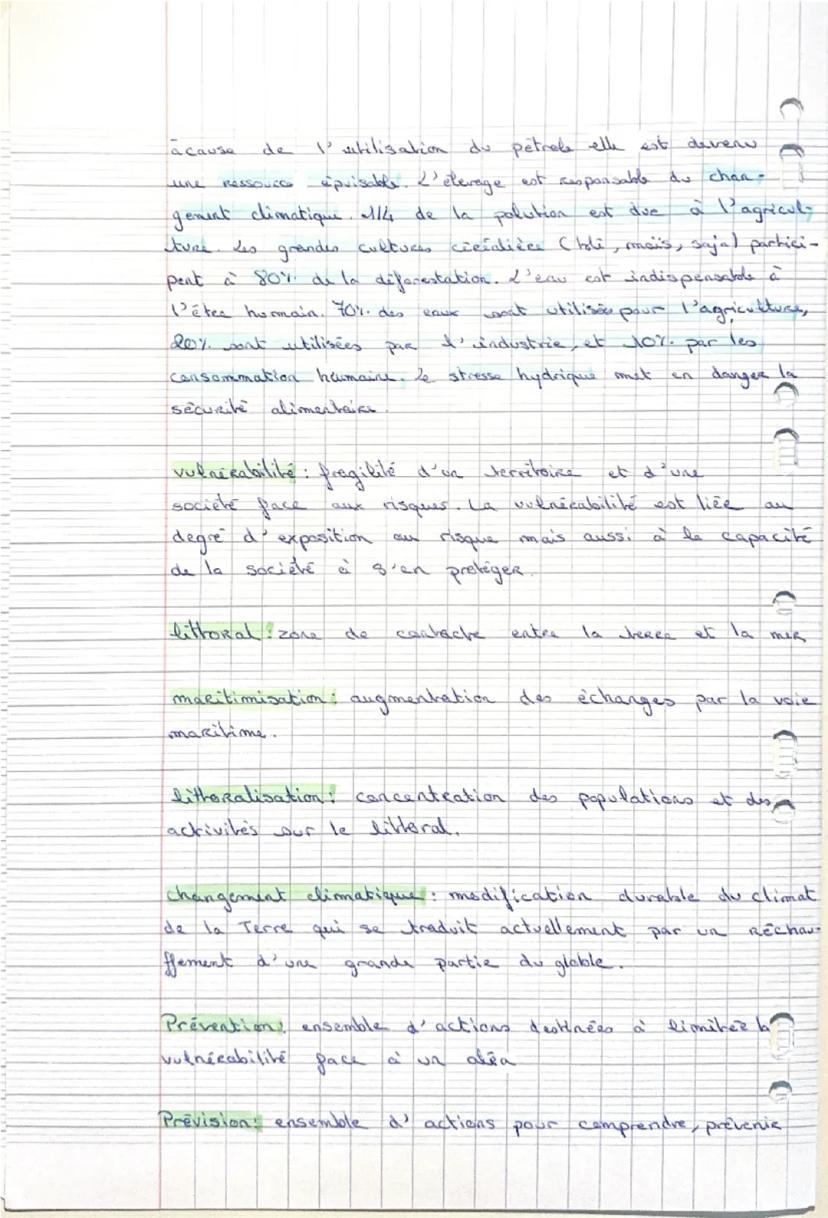 àcause de l'utilisation du pétrole elle est devenu
une ressource épuisable. L'élevage est responsable du chan-
gement climatique. 1/4 de la polution est due à l'agricul-
ture. Les grandes cultures (blé, maïs, soja) partici-
pent à 80% de la déforestation. L'eau est indispensable à
l'être humain. 70% des eaux sont utilisés pour l'agriculture,
20% sont utilisées par l'industrie, et 10% par les
consommation humaine. Le stresse hydrique met en danger la
sécurité alimentaire.
vulnérabilité : fragilité d'un territoire et d'une
société face aux risques. La vulnérabilité est liée au
degré d'exposition au risque mais aussi à la capacité
de la société à s'en protéger.
littoral : zone de contacte entre la terre et la mer
maritimisation : augmentation des échanges par la voie
maritime.
littoralisation : concentration des populations et des
activités sur le littoral.
changement climatique : modification durable du climat
de la Terre qui se traduit actuellement par un réchau-
ffement d'une grande partie du globle.
Prévention : ensemble d'actions destinées à limiter la
vulnérabilité face à un aléa
Prévision : ensemble d'actions pour comprendre, prévenir